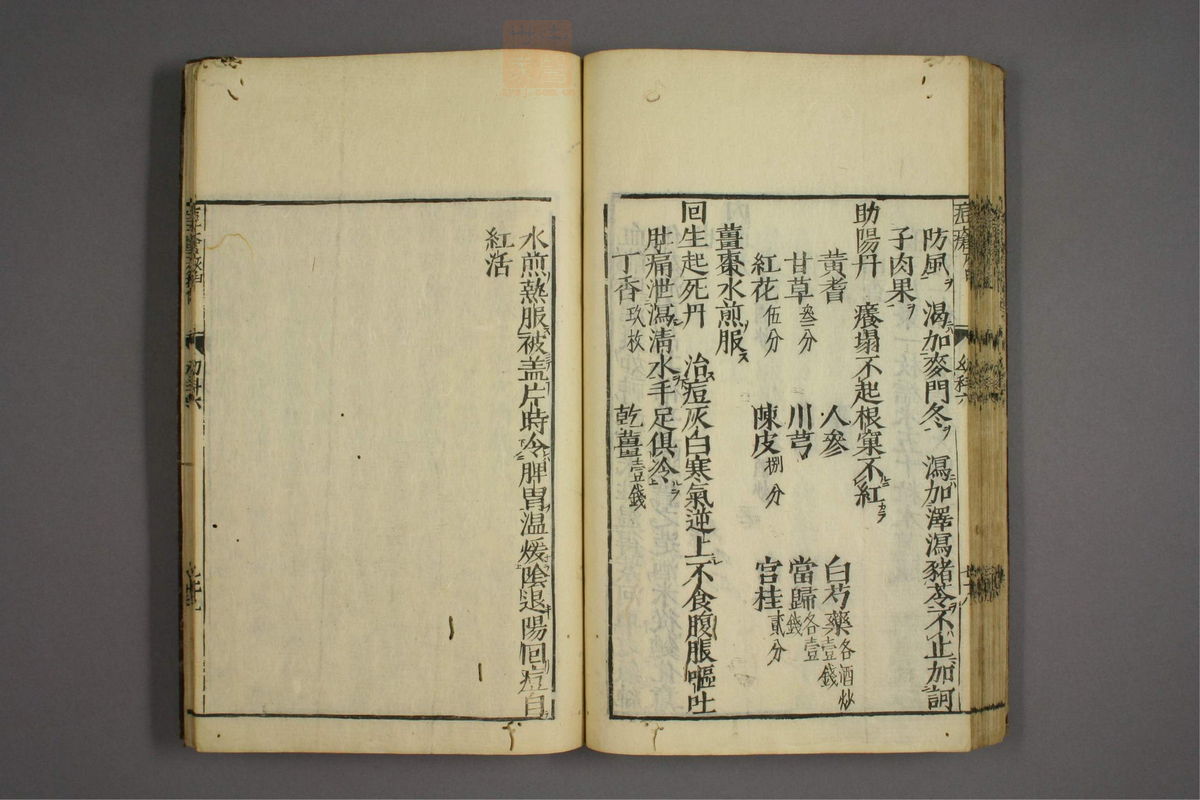 防風ヲ 渴加麥門冬ヲ 瀉加澤瀉豬苓不止加訶
子肉果ヲ
助陽丹 癢塌不起根窠不紅
黄耆 人參 白芍藥各酒炒壹錢
甘草叄分 川芎 當歸各壹錢
紅花伍分 陳皮捌分 官桂貳分
薑棗水煎服ス
回生起死丹 治痘灰白寒氣逆上不食腹脹嘔吐
肚痛泄瀉清水手足俱冷
丁香玖枚 乾薑壹錢
水煎熱服被盖片時令脾胃温煖陰退陽回痘自
紅活